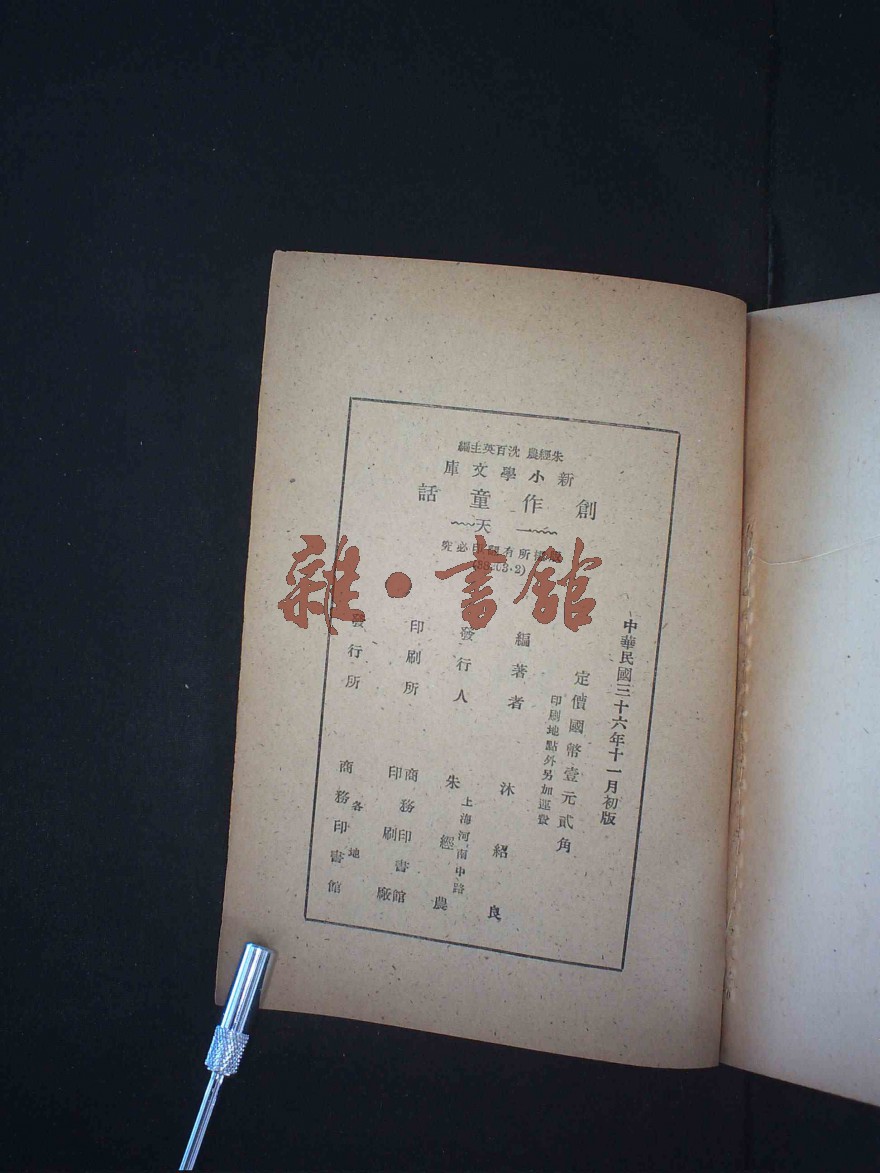 朱經農 沈百英主編
新小學文庫
創作童話
一天
版權所有翻印必究
中華民國三十六年十一月初版
定價國幣壹元貳角
印刷地點外另加運費
編著者 沐紹良
發行人 朱經農
上海河南中路
印刷所 商務印書館
印刷廠
發行所 各地
商務印書館
雜·書館